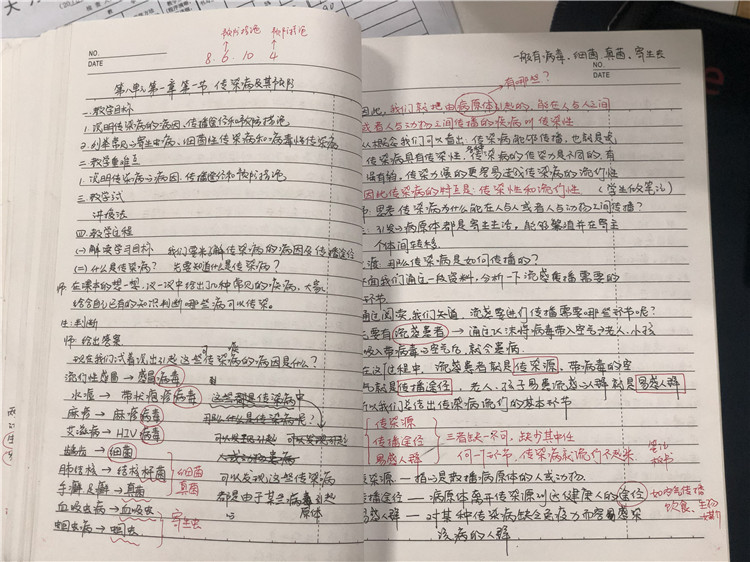 NO.
DATE
8. 6. 10 4
第八单元 第一章 第一节 传染病及其预防
一、教学目标
1. 说明传染病的病因、传播途径和预防措施
2. 列举常见的寄生虫病、细菌性传染病和病毒性传染病
二、教学重难点
1. 说明传染病的病因、传播途径和预防措施
三、教学
讲授法
四、教学过程
(一) 解读学习目标 我们要来了解传染病的病因及传播途径
(二) 什么是传染病?
师: 在课本的想一想,议一议中给出了几种常见的疾病,大家
结合自己已有的知识判断哪些病可以传染。
生: 判断
师: 给出答案
现在我们试着说出引起这些传染病的病因是什么?
流行性感冒→流感病毒
水痘→带状疱疹病毒 这些都是传染病中
麻疹→麻疹病毒 那么什么是传染病呢?
艾滋病→HIV病毒
龋齿→细菌
肺结核→结核杆菌 细菌 可以发现这些传染病
手癣足癣→真菌 真菌 都是由于某些病毒引起
血吸虫病→血吸虫 寄生虫 病原体
蛔虫病→蛔虫
一般有:病毒、细菌、真菌、寄生虫
NO.
DATE
有哪些?
因此,我们就把由病原体引起的,能在人与人之间
或者人与动物之间传播的疾病叫传染性
从概念我们可以看出传染病能够传播,也就是说
传染病具有传染性,传染病的传染力是不同的,有
强有弱,传染力强的更容易造成传染病的流行性
因此传染病的特点是:传染性和流行性 (学生做笔记)
思考传染病为什么能在人与人或者人与动物之间传播?
引起的病原体都是寄生生活,能够繁殖并在寄主
个体间转移
那么传染病是如何传播的?
面我们通过一段资料,分析一下流感传播需要的
环节
通过阅读,我们知道,流感要进行传播需要哪些环节呢?
要有流感患者→通过飞沫将病毒带入空气→老人、小孩
吸入带病毒的空气后,就会患病
在这过程中,流感患者就是传染源,带病毒的空
气就是传播途径,老人、孩子易患流感的人群就是易感人群
所以我们总结出传染病流行的基本环节
传染源
传播途径 三者缺一不可,缺少其中任
易感人群 何一个环节,传染病就流行不起来
笔记
板书
传染源—指的是散播病原体的人或动物。
传播途径—病原体离开传染源到达健康人的途径 如:空气传播
饮食、生物
易感人群—对某种传染病缺乏免疫力而容易感染
该病的人群